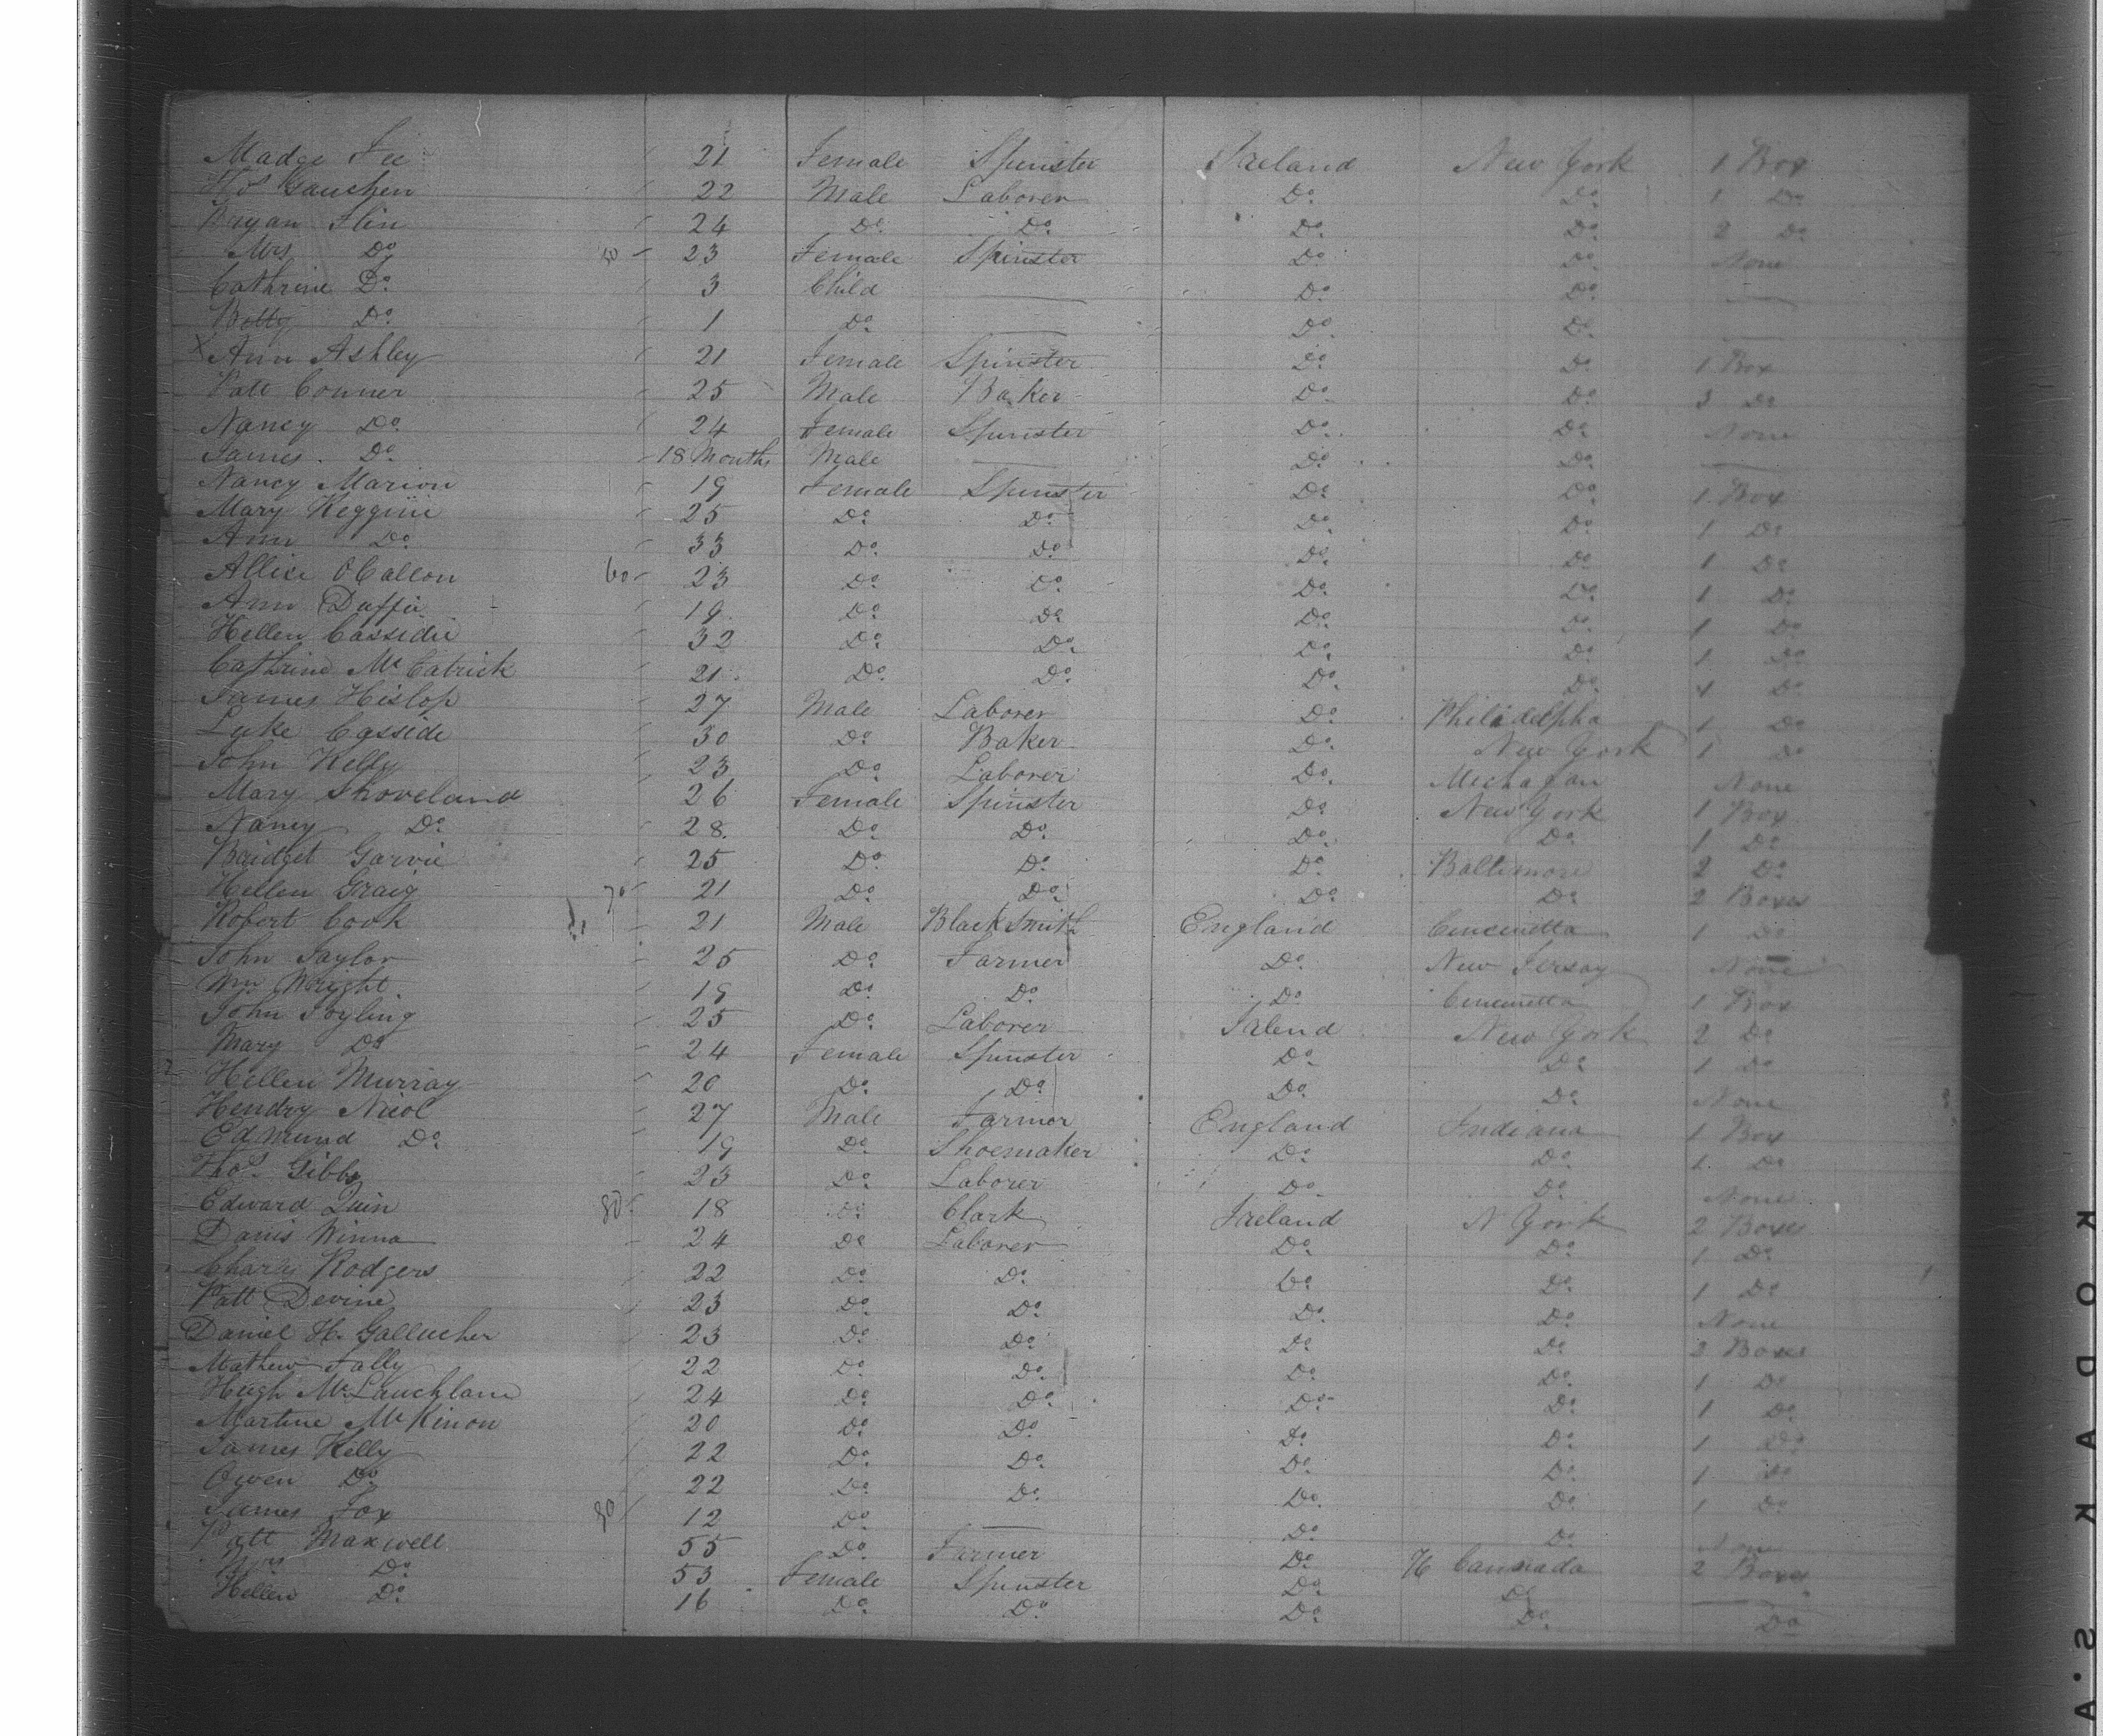 Madge Fee 21 Female Spinster Ireland New York 1 Box
Gauchen 22 Male Laborer Do. Do. 1 Do.
Bryan Slin 24 Do. Do. Do. Do. 2 Do.
Mrs Do 50 23 Female Spinster Do. Do. None
Cathrine Do. 3 Child — Do. Do. —
Betty Do. 1 Do. — Do. Do. —
X Ann Ashley 21 Female Spinster Do. Do. 1 Box
Patt Conner 25 Male Baker Do. Do. 3 Do
Nancy Do. 24 Female Spinster Do. Do None
James. Do. 18 Months Male — Do. Do. —
Nancy Marion 19 Female Spinster Do. Do. 1 Box
Mary Keggine 25 Do. Do. Do. Do. 1 Do
Ann Do. 33 Do. Do Do. Do 1 Do
Allice OCallon 60 23 Do. Do. Do. Do. 1 Do.
Ann Daffie 19. Do. Do. Do. Do. 1 Do.
Hellen Cassidie 32 Do. Do. Do. Do. 1 Do
Cathrine Mc Catrick 21. Do. Do. Do. Do. 1 Do.
James Hislop 27 Male Laborer Do. Philadelpha 1 Do
Luke Casside 30 Do. Baker Do. New York 1 Do
John Kelly 23 Do. Laborer Do. Michagan None
Mary Shoveland 26 Female Spinster Do. New York 1 Box
Nancy Do. 28. Do. Do. Do. Do. 1 Do.
Bridget Garvie 25 Do. Do. Do. Baltimore 2 Do.
Hellen Graig 70 21 Do. Do. Do Do. 2 Boxes
Robert Cook 21 Male Black Smith England Cincinetta 1 Do
John Taylor 25 Do. Farmer Do. New Jersay None
Wm Wright 19 Do. Do. Do Cincinetta 1 Box
John Foyling 25 Do. Laborer Irlend New York 2 Do
Mary Do 24 Female Spinster Do. Do. 1 Do
Hellen Murray 20 Do. Do. Do. Do. None
Hendry Nicol 27 Male Farmer England Indiana 1 Box
Edmund Do. 19 Do. Shoemaker Do. Do. 1. Do
Thos. Gibbs 23 Do. Laborer Do. Do. None
Edward Quin 80 18 Do. Clark Ireland N York 2 Boxes
Danis Winna 24 Do Laborer Do. Do. 1 Do.
Charls Rodgers 22 Do. Do. Do. Do. 1 Do
Patt Devine 23 Do. Do. Do. Do. None
Daniel H. Gallucher 23 Do. Do. Do. Do. 2 Boxes
Mathew Fally 22 Do. Do. Do. Do. 1 Do
Hugh McLauchlane 24 Do. Do. Do. Do. 1 Do.
Martine McKinon 20 Do. Do. Do. Do. 1 Do.
James Kelly 22 Do. Do. Do. Do. 1 Do
Owen Do 22 Do. Do. Do. Do. 1 Do
James Fox 90 12 Do. — Do. Do. None
Patt Maxwell 55 Do. Farmer Do. Cannada 2 Boxes
Mrs Do. 53 Female Spinster Do. Do —
Hellen Do. 16 Do. Do. Do. Do. Do
KODAK S.A